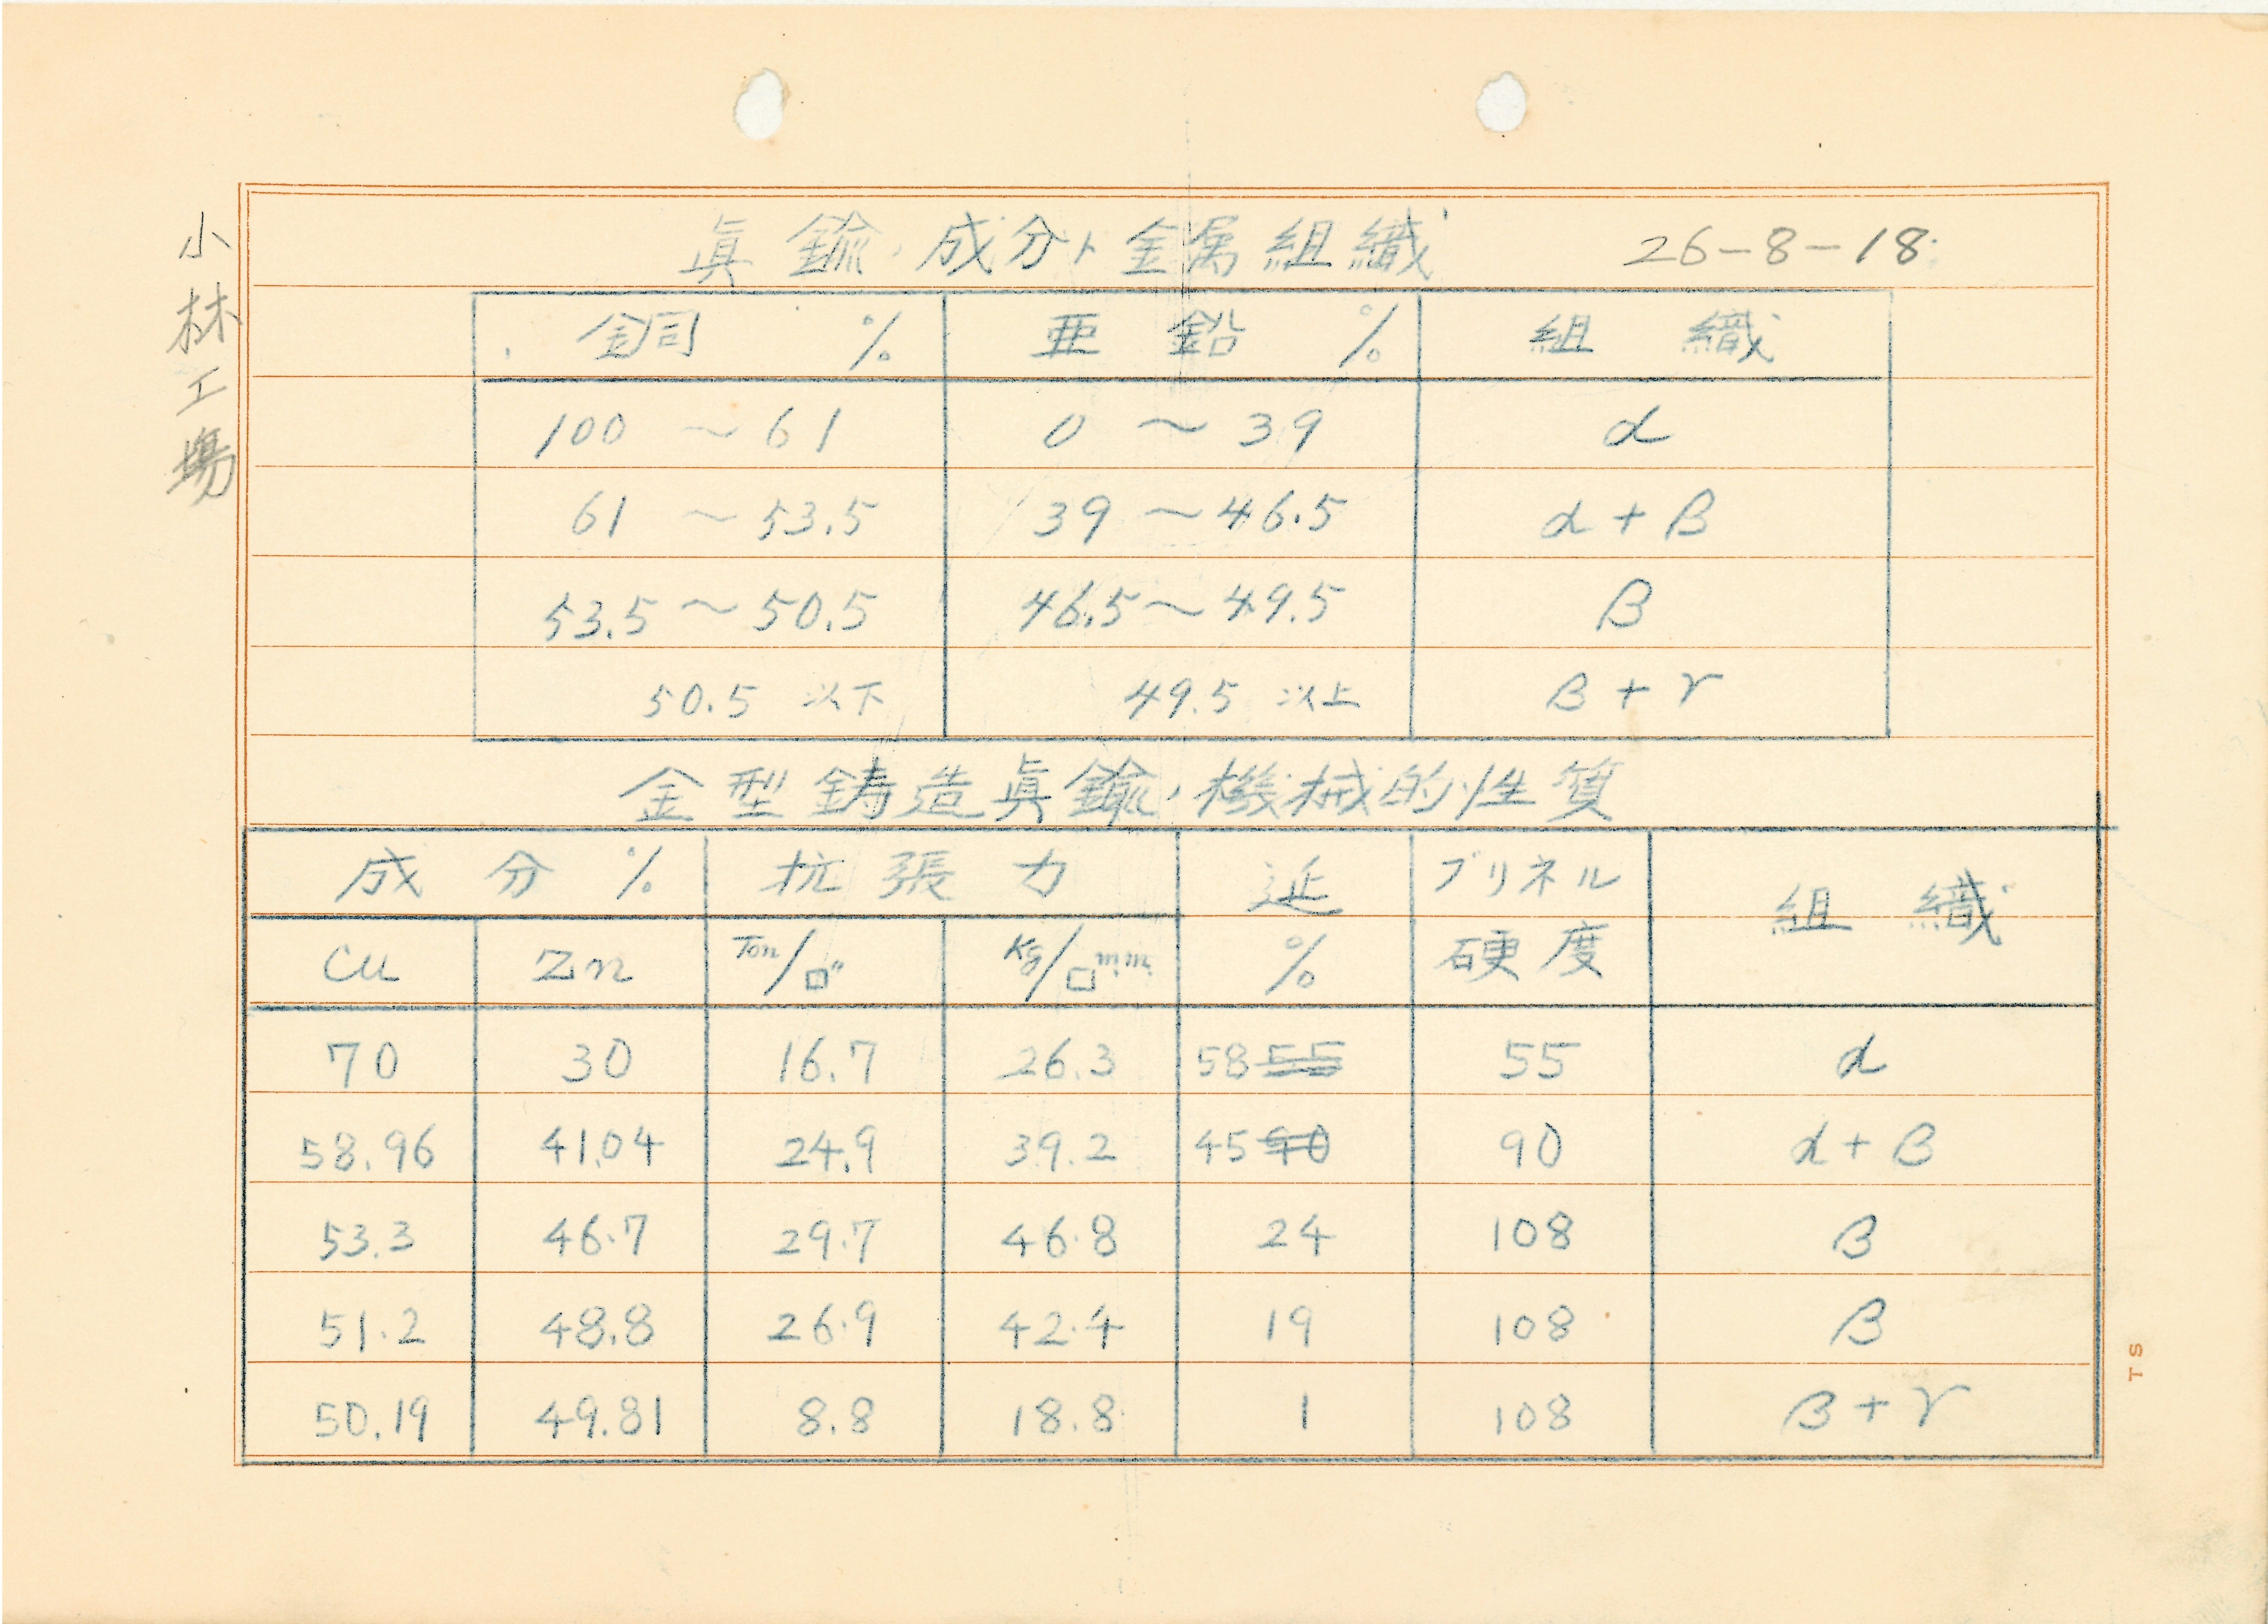 小林工場
眞鍮ノ成分ト金属組織 26-8-18
銅 % 亜鉛 % 組織
100 ～ 61 0 ～ 39 α
61 ～ 53.5 39 ～ 46.5 α + β
53.5 ～ 50.5 46.5 ～ 49.5 β
50.5 以下 49.5 以上 β + γ
金型鋳造眞鍮ノ機械的性質
成分 % 抗張力 延 % ブリネル硬度 組織
Cu Zn Ton/□" Kg/□mm
70 30 16.7 26.3 58 55 55 α
58.96 41.04 24.9 39.2 45 90 90 α + β
53.3 46.7 29.7 46.8 24 108 β
51.2 48.8 26.9 42.4 19 108 β
50.19 49.81 8.8 18.8 1 108 β + γ
TS